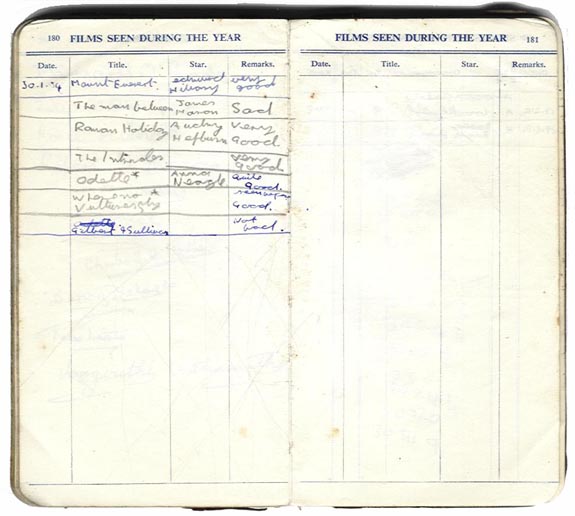 180 FILMS SEEN DURING THE YEAR
Date. Title. Star. Remarks.
30.1.54 Mount Everest. edmund very
Hillary good
The man between James
Mason Sad
Roman Holiday Audry Very
Hepburn Good.
The Intruder very
Good
Odette* Anna quite
Neagle Good.
Where no * seen before
Vultures fly Good.
Gilbert & Sullivan Not
bad.
FILMS SEEN DURING THE YEAR 181
Date. Title. Star. Remarks.